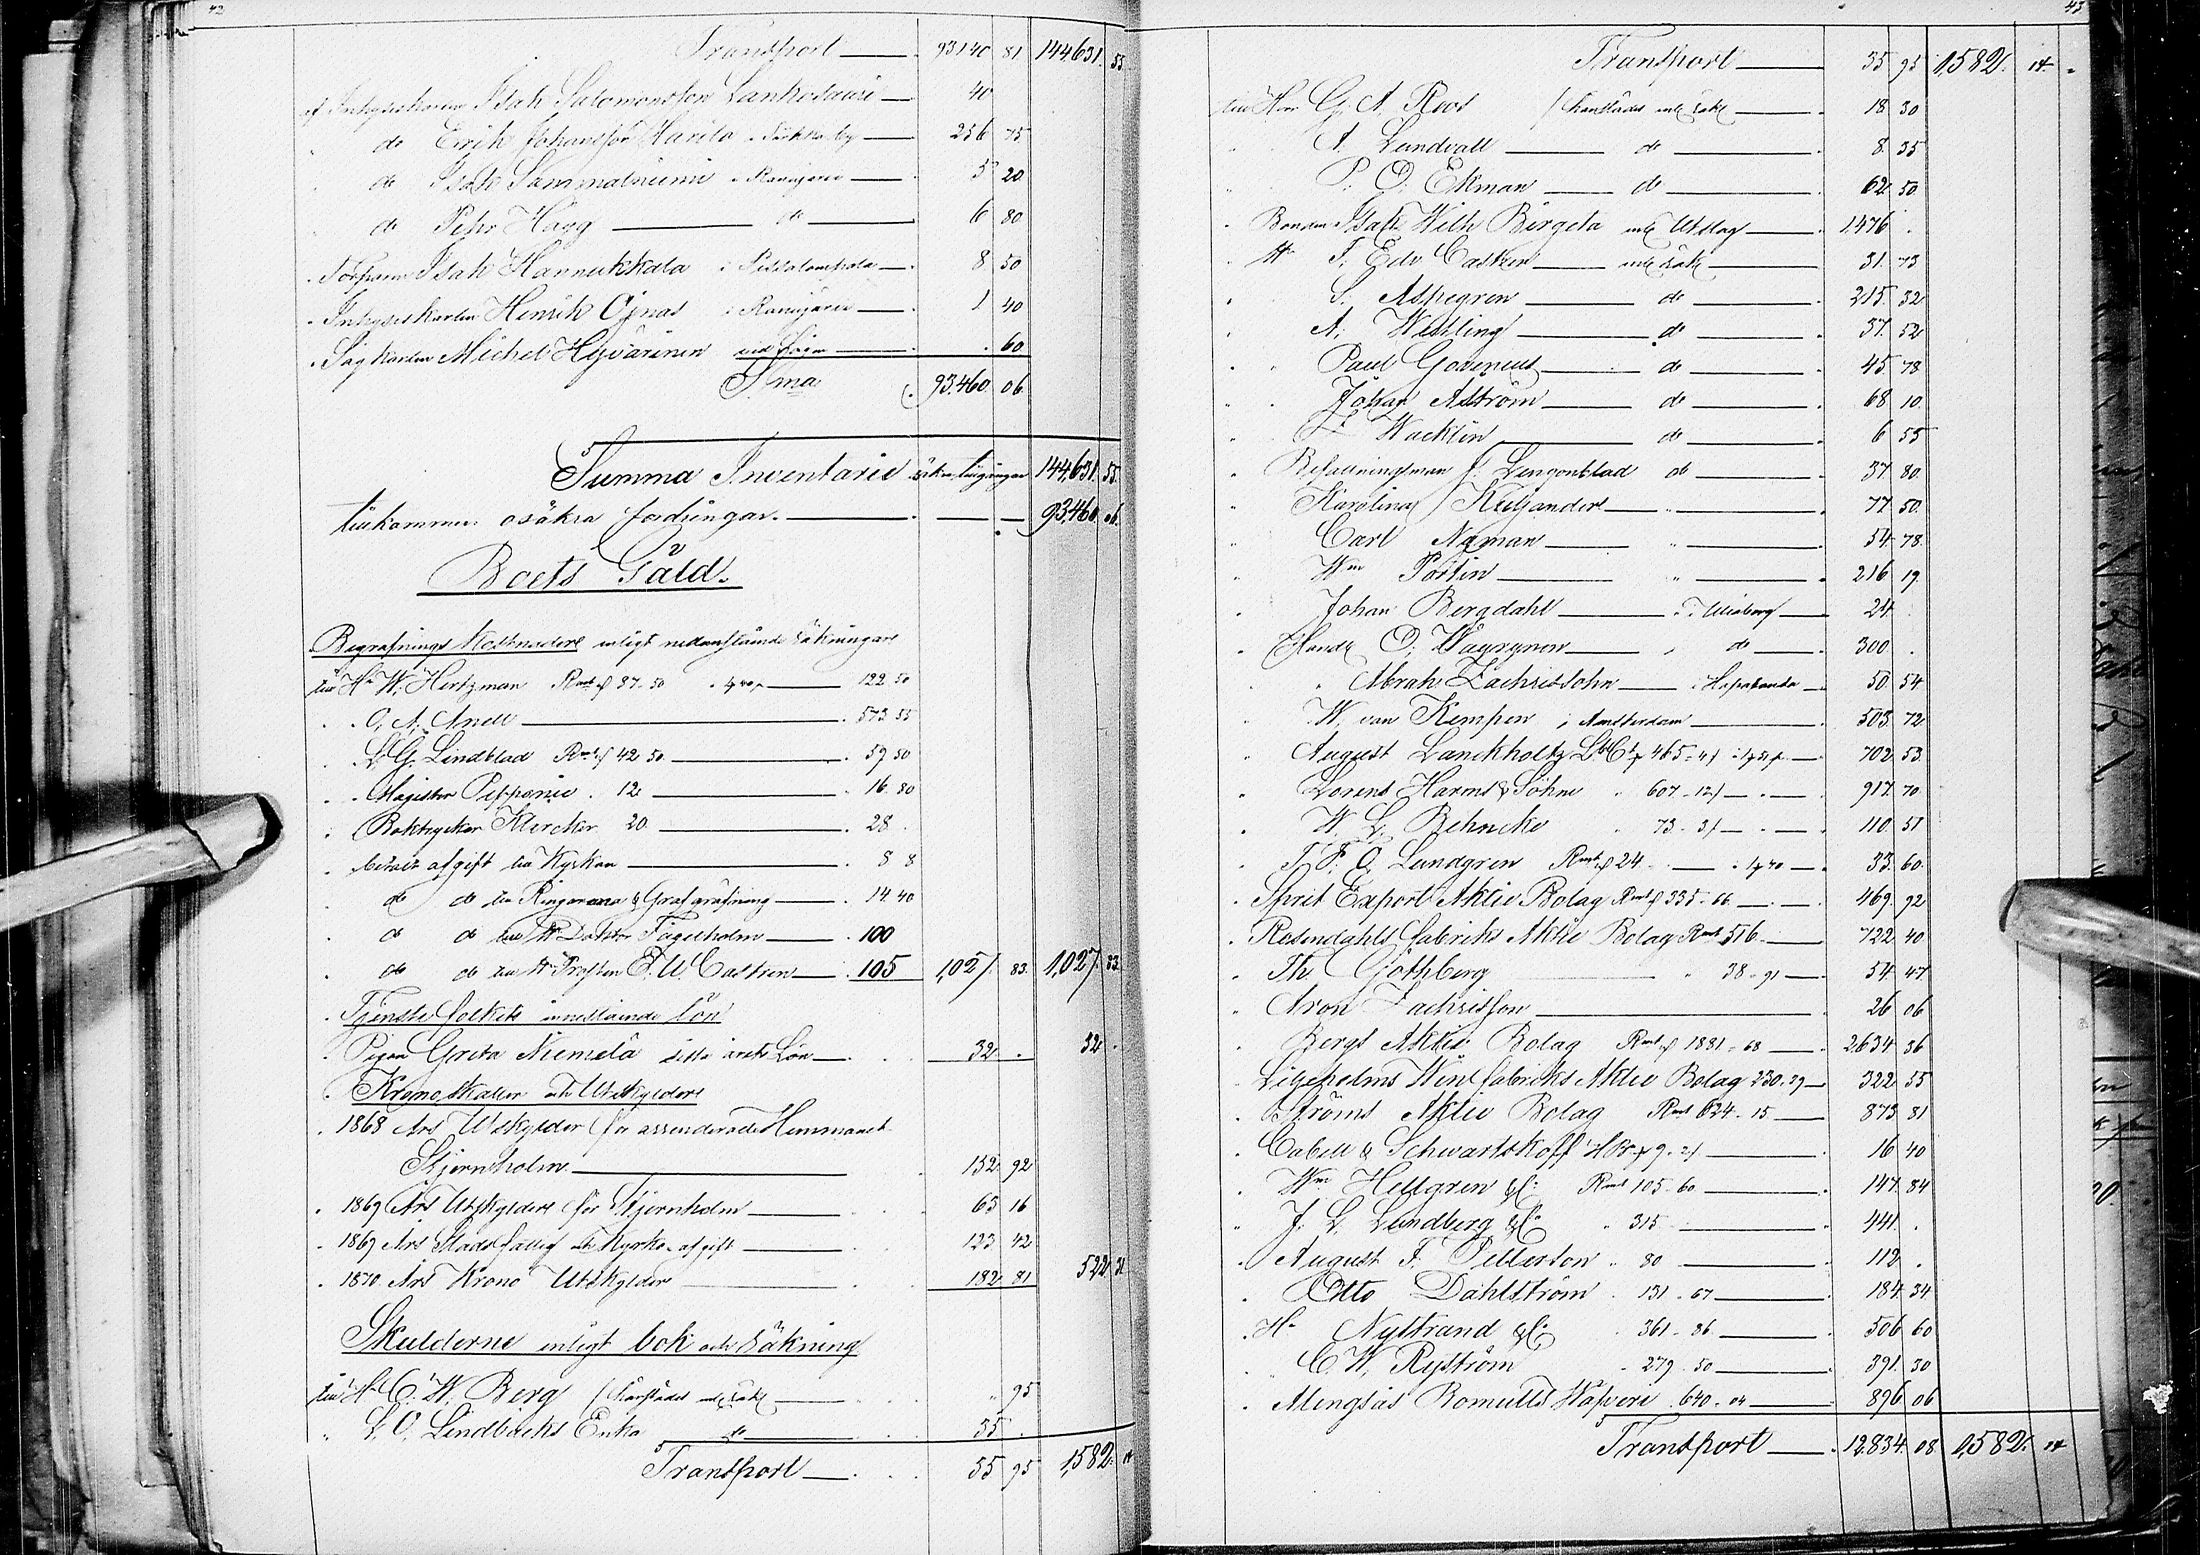 42
Transport 93140 81 144,631. 55
af Inhyseskarlen Isak Salomonsson Lankosaari 40
do Erik Johansson Harila 256 75
do Isak Sammalniemi i Ranijärvi 5 20
do Pehr Hagg do 6 80
Torparen Isak Hannukkala i 8 50
Inhyseskarlen Henrik Ojnas i Ranijärvi 1 40
Sågkarlen Michel Hyvärinen vid sågen . 60
S:ma 93,460. 06
Summa Inventarie säkra tillgångar 144,631. 55.
tillkommer osäkra fordringar. 93,460. 06.
Boets Gäld.
Begrafnings Kostnader enligt nedanstående räkningar
till Hr W. Hertzman Rmt rf 87.50 122 50
" O. A. Anell 573 55
L. G. Lindblad Rmt rf 42 50 59 50
" Magister Pipponie 12 16 80
" Boktryckar Klercker 20 28 .
betalt afgift till Kyrkan 8 8
do do till Ringarena & Grafgräfning 14 40
do do till Hr Doktor Fagerholm 100
do do till Hr Prosten F. U. Castren 105 1,027 83. 1,027. 83.
Tjenste folkets innestående lön
Pigan Greta Niemelä sista årets Lön 32 . 32 .
Krono skatter och Utskylder
1868 Års Utskylder för arrenderade Hemmanet
Stjernholm 152 92
1869 Års Utskylder för Stjernholm 63 16
1869 Års Stads fattig och Kyrko afgift 123 42
1870 Års Krono Utskylder 182 81 522 31
Skulderne enligt bok och räkning
till Hr C. W. Berg härstädes enl. räk. " 95
" L. O. Lindbäcks Enka do 55 .
Transport 55 95 1,582. 14
43
Transport 55 95 1,582. 14.
till Herr G. A. Roos härstädes enl. räk. 18 30
" A. Lundvall do 8. 35
" P. O. Ekman do 62. 50
" Bonden Isak Wilh Birgeta enl. Utslag 1476 .
" Hr F. Edv. Castren enl. räk. 31. 73
" S. Aspegren do 215. 32
A. Westling do 37. 52
" Paul Govenius do 45 78
" Johan Åström do 68 10.
" Wacklin do 6 55
" Befallningsman J. Lengonblad do 37 80.
" Karolina Keljander " 77 50.
" Carl Nyman " 54 78.
" Wm Portin " 216 19.
" Johan Bergdahl i Uleåborg 24
" Handl. O. Wäyrynen " do 300 .
" Abrah. Zachrissohn i Haparanda 50. 54
W. van Kempen i Amsterdam 503. 72
" August Lanckholtz 465 702 53
" Lorens Harms & Söhne " 607 12 917. 70
W. L. Behncke " 73 3 110 51
" T. F. O. Lundgren Rmt rf 24 33. 60
Sprit Export Aktie Bolag Rmt rf 335.66 469. 92
Rosendahls fabriks Aktie Bolag Rmt 516 722 40
Th. Göthberg " 38.91 54 47
Aron Zachrisson 26 06
Bergs Aktie Bolag Rmt rf 1881.68 2634 36
Liljeholms Winfabriks Aktie Bolag 230.39 322 55
Ströms Aktie Bolag Rmt 624.15 873 81
Cabell & Schwartskoff 16 40
Wm Hellgren & Co Rmt 105.60 147. 84
J. L. Lundberg & Co " 315 441 .
August F. Pellerson " 80 112 .
Otto Dahlström 131.67 184. 34
Hr Nystrand & Co 361.86 506 60
C. W. Ryström 279.50 391. 30
Alingsås Bomulls Wäfveri 640.04 896 06
Transport 12,834. 08 1,582. 14